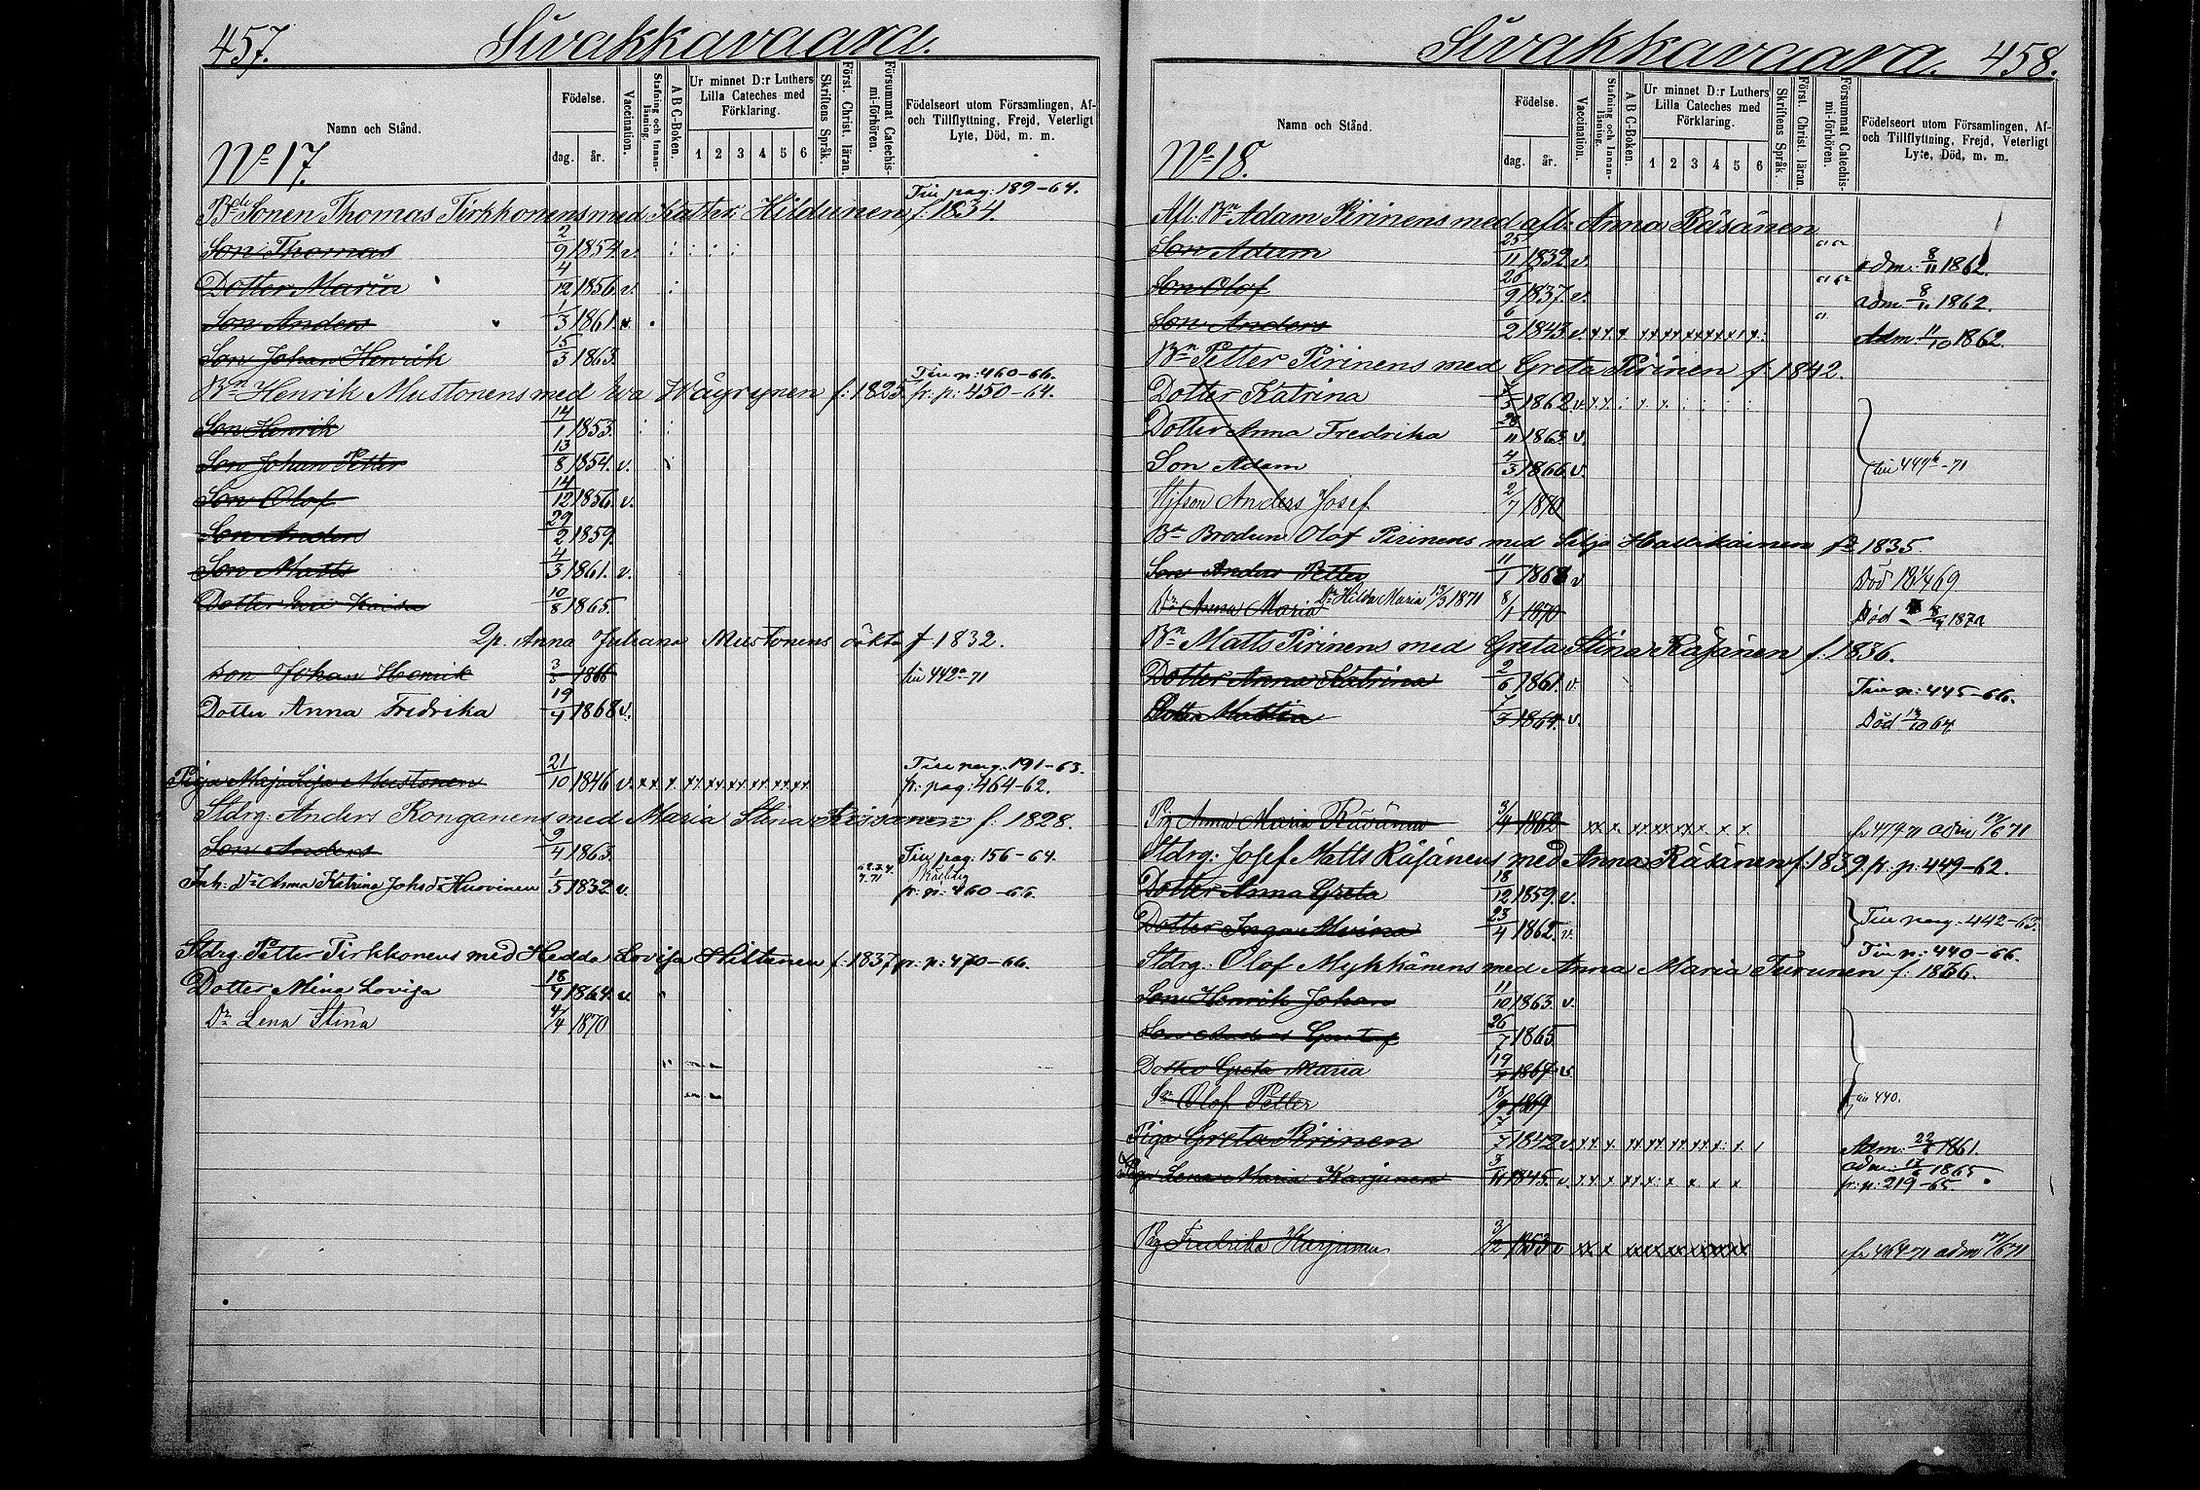 457.
Sivakkavaara.
Namn och Stånd.
Födelse.
dag.
år.
Vaccination.
Stafning och Innanläsning.
A B C-Boken.
Ur minnet D:r Luthers Lilla Cateches med Förklaring.
1 2 3 4 5 6
Skriftens Språk.
Först. Christ. läran.
Försummat Catechismi-förhören.
Födelseort utom Församlingen, Af- och Tillflyttning, Frejd, Veterligt Lyte, Död, m. m.
No 17.
Till pag: 189-64.
Thomas Tirkkonens med Hildunen f. 1834.
Son Thomas 2/9 1854 v.
Dotter Maria 4/12 1856 v.
Son Anders 1/3 1861
Son Johan Henrik 15/3 1863.
Till p: 460-66.
Bn Henrik Mustonens med Eva Wäyrynen f: 1825 fr: p: 450-64.
Son Henrik 14/1 1853.
Son Johan Petter 13/8 1854. v.
Son Olof 14/12 1856 v.
Son Anders 29/2 1859.
Son Matts 4/3 1861. v.
Dotter Eva Kaisa 10/8 1865.
Anna Juliana Mustonens f 1832.
Son Johan Henrik 1866 till 442a-71
Dotter Anna Fredrika 19/4 1868 v.
Till pag. 191-63.
Piga Maja Lisa Mustonen 21/10 1846 v. fr: pag: 464-62.
Stdrg: Anders Ronganens med Maria Stina f: 1828.
Son Anders 9/4 1863. Till pag: 156-64.
Inh: Anna Katrina Huovinen 1/5 1832 v. fr: p: 460-66.
Stdrg: Petter Tirkkonens med Hedda Lovisa Hiltunen f: 1837 fr: p: 470-66.
Dotter Mina Lovisa 18/4 1864. v.
Dr Lena Stina 4/4 1870
Sivakkavaara.
458.
Namn och Stånd.
Födelse.
dag.
år.
Vaccination.
Stafning och Innanläsning.
A B C-Boken.
Ur minnet D:r Luthers Lilla Cateches med Förklaring.
1 2 3 4 5 6
Skriftens Språk.
Först. Christ. läran.
Försummat Catechismi-förhören.
Födelseort utom Församlingen, Af- och Tillflyttning, Frejd, Veterligt Lyte, Död, m. m.
No 18.
Afl: Bn Adam Pirinens med afl: Anna Räsänen
Son Adam 25/11 1832 v. adm: 8/11 1862.
Son Olof 26/9 1837 v. adm. 8/11 1862.
Son Anders 6/2 1843 v. Adm. 11/10 1862.
Bn Petter Pirinens med Greta Pirinen f. 1842.
Dotter Katrina 1862 v.
Dotter Anna Fredrika 1863 v.
Son Adam 4/3 1866 v. till 447b-71
Anders Josef 2/7 1870
Bn Brodern Olof Pirinens med Silja f. 1835.
Son Anders Petter 11/1 1868 v Död 69
Dr Anna Maria 8/1 1870 Dr Hilda Maria 1871 Död 1870
Bn Matts Pirinens med Greta Stina Räsänen f. 1836.
Dotter Anna Katrina 2/6 1861. v. Till p: 445-66.
Dotter 1864. v. Död 64
Pig Anna Maria Räsänen 3/4 1852 fr 479-71 adm 71
Stdrg: Josef Matts Räsänens med Anna Räsänen f. 1839. fr. p: 449-62.
Dotter Anna Greta 18/12 1859. v.
Dotter Inga 23/4 1862. v. Till pag. 442-63.
Till p: 440-66.
Stdrg. Olof Mykkänens med Anna Maria Turunen f. 1836.
Son Henrik Johan 11/10 1863. v.
Son Anders Gustaf 26/7 1865
Dotter Greta Maria 1867 v.
Sn Olof Petter 1869 till 440.
Piga Greta Pirinen 7/7 1842 v. Adm. 1861.
Piga Lena Maria Karjunen 3/11 1845. v. adm. 1865 fr: p: 219-65.
Pig Fredrika 3/12 1853 v fr 464-71 adm 71